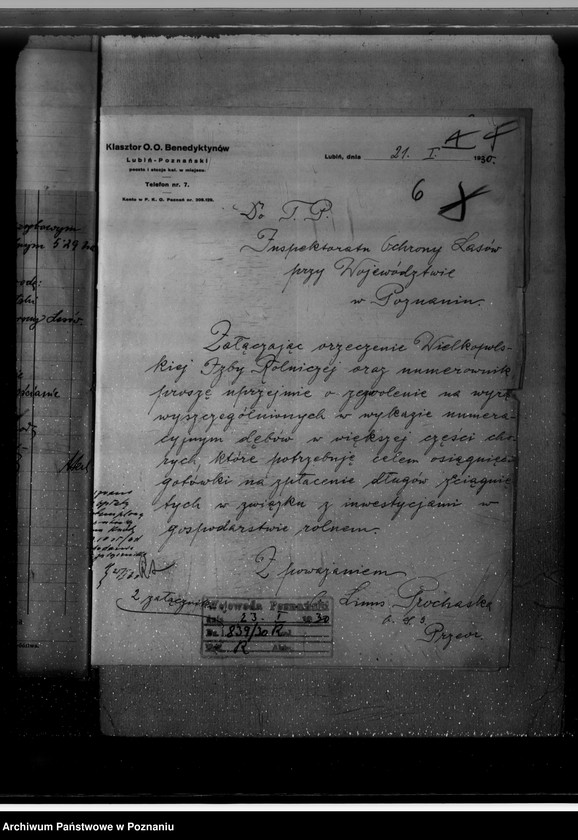 Klasztor O. O. Benedyktynów
Lubiń-Poznański
poczta i stacja kol. w miejscu.
Telefon nr. 7.
Konto w P. K. O. Poznań nr. 206.120.
Lubiń, dnia 21. I. 1930.
4
6
Do T. P.
Inspektoratu Ochrony Lasów
przy Województwie
w Poznaniu.
Załączając orzeczenie Wielkopols-
kiej Izby Rolniczej oraz numerownik
proszę uprzejmie o zezwolenie na wyrąb
wyszczególnionych w wykazie numera-
cyjnym dębów w większej części cho-
rych, które potrzebuję celem osiągnięcia
gotówki na spłacenie długów ściągnię-
tych w związku z inwestycjami w
gospodarstwie rolnem.
Z poważaniem
2 załączniki
Linus Prochaska
O. S. B.
Przeor.
Wojewoda Poznański
dnia 23. I. 1930
Nr. 839/30 R
Wydz. R
Archiwum Państwowe w Poznaniu